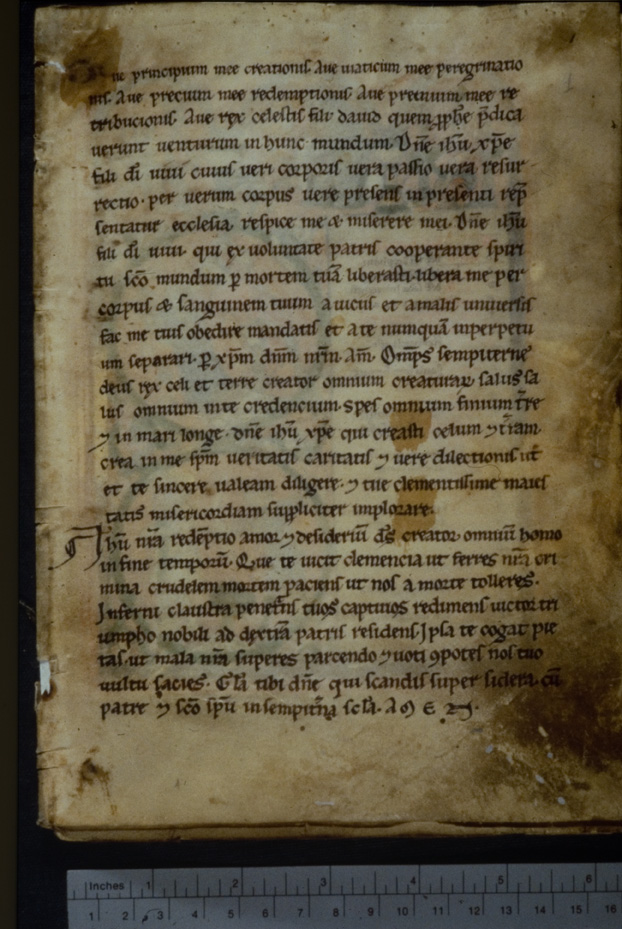 Aue principium mee creationis. Aue uiaticum mee peregrinatio
nis. Aue precium mee redemptionis. Aue premium mee re
tribucionis. Aue rex celestis fili dauid quem ꝓphe p̄dica
uerunt uenturum in hunc mundum. Dn̄e ih̄u xp̄e
fili dī uiui cuius ueri corporis uera passio uera resur
rectio. per uerum corpus uere presens in presenti rep̄
sentatur ecclesia. respice me & miserere mei. Dn̄e ih̄u
fili dī uiui. qui ex uoluntate patris cooperante spiri
tu sc̄o mundum ꝑ mortem tuā liberasti. libera me per
corpus & sanguinem tuum a uiciis et a malis uniuersis
fac me tuis obedire mandatis et a te numquā inperpetu
um separari. ꝑ xp̄m dn̄m nr̄m. Am̄. Omp̄s sempiterne
deus rex celi et terre creator omnium creaturaꝝ salus sa
lus omnium in te credencium. spes omnium finium tr̄re
⁊ in mari longe. dn̄e ih̄u xp̄e qui creasti celum ⁊ tr̄am.
crea in me sp̄m ueritatis caritatis ⁊ uere dilectionis ut
et te sincere ualeam diligere. ⁊ tue clementissime maies
tatis misericordiam suppliciter implorare.
Jh̄u nr̄a redēptio amor ⁊ desideriū ds̄ creator omniū homo
in fine temporū. Que te uicit clemencia ut ferres nr̄a cri
mina crudelem mortem paciens ut nos a morte tolleres.
Inferni claustra penetr̄ns tuos captiuos redimens uictor tri
umpho nobili ad dextrā patris residens. Ipsa te cogat pie
tas. ut mala nr̄a superes parcendo ⁊ uoti ꝯpotes nos tuo
uultu sacies. Gl̄a tibi dn̄e qui scandis super sidera. cū
patre ⁊ sc̄o sp̄u in sempitn̄a scl̄a. A M E N.